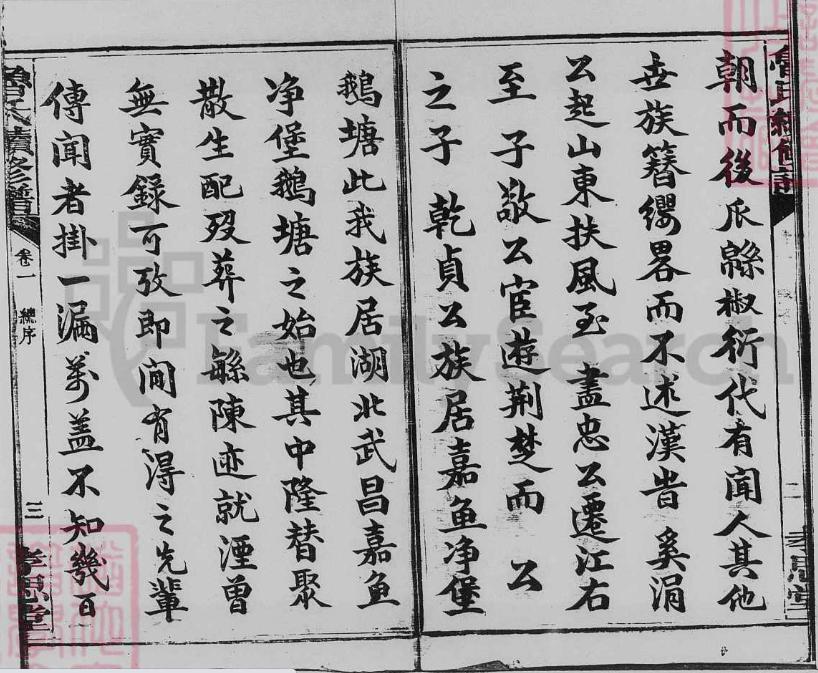 朝而後瓜緜椒衍代有聞人其他
世族簪纓畧而不述漢昔奚涓
公起山東扶風至 盡忠公遷江右
至 子敬公宦遊荆楚而 公
之子 乾貞公族居嘉鱼净堡
鵝塘此我族居湖北武昌嘉鱼
净堡鵝塘之始也其中隆替聚
散生配歿葬之繇陳迹就湮曾
無實録可攷即间有淂之先輩
傳聞者掛一漏萬盖不知幾百
魯氏續修譜
卷一
總序
三
孝思堂
二
孝思堂
FamilySearch